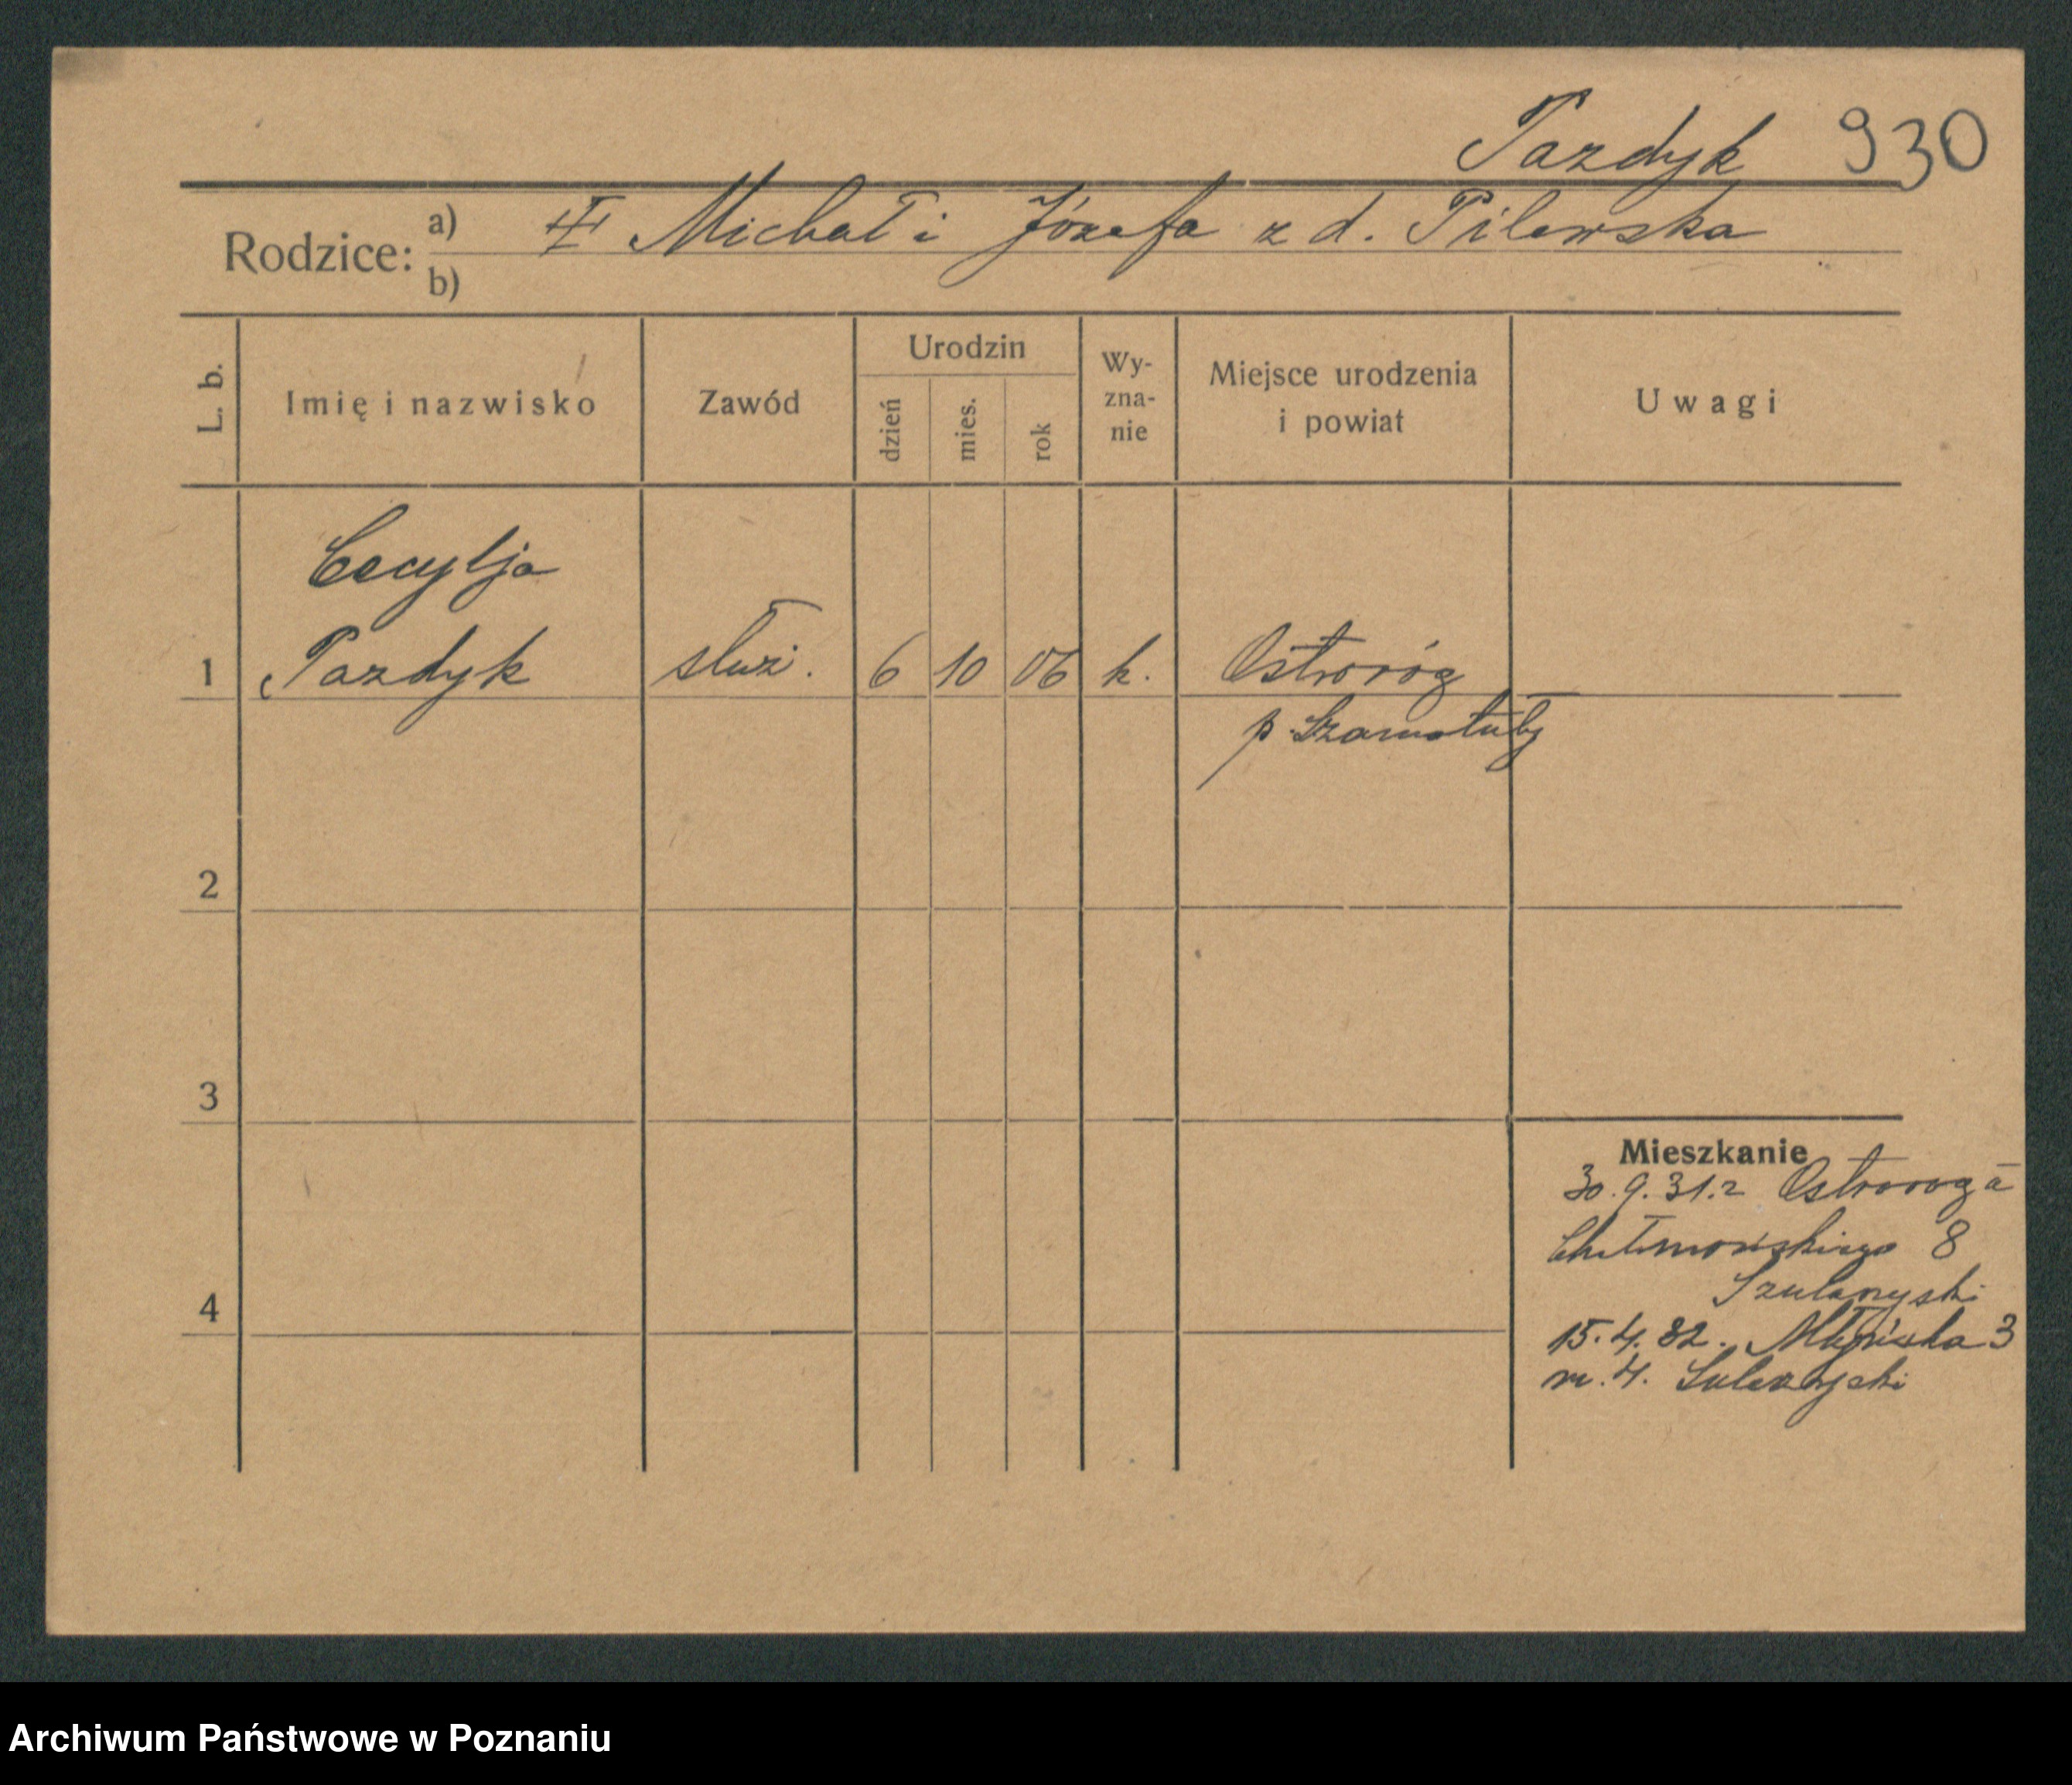 Pazdyk 930
Rodzice: a) Michał i Józefa z d. Pilewska
b)
L. b. Imię i nazwisko Zawód Urodzin dzień mies. rok Wy-zna-nie Miejsce urodzenia i powiat Uwagi
Cecylja
1 Pazdyk służ. 6 10 06 k. Ostroróg
p. Szamotuły
2
3
Mieszkanie
30.9.31. z Ostroroga
Chełmońskiego 8
4
15.4.32. Młyńska 3
m. 4.
Archiwum Państwowe w Poznaniu